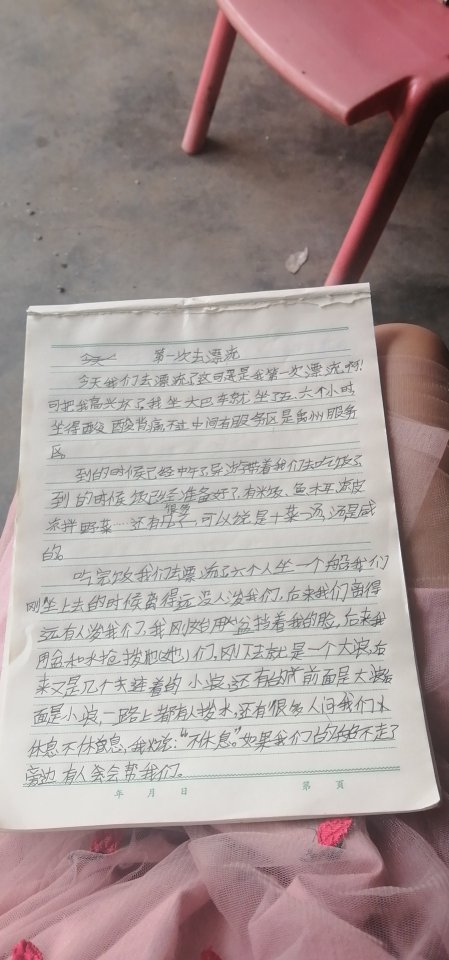 第一次去漂流
今天我们去漂流了这可是我第一次漂流啊!
可把我高兴坏了,我坐大巴车就坐了五、六个小时,
坐得腰酸背痛不过中间有服务区是禹州服务
区。
到的时候已经中午了导游带着我们去吃饭了
到的时候饭已经准备好了,有米饭、鱼、木耳、凉皮
凉拌野菜……还有,可以说是十菜一汤,汤是咸
的。
吃完饭我们去漂流了六个人坐一个船我们
刚坐上去的时候离得远没人泼我们,后来我们离得
近有人泼我们了,我刚开始用盆挡着我的脸,后来我
用盆和水抢拨他(她)们,刚下去就是一个大浪,后
来又是几个夹着的小浪,还有的前面是大浪后
面是小浪,一路上都有人拨水,还有很多人问我们
休息不休息,我说:“不休息。”如果我们的船不走了
旁边有人会帮我们。
年 月 日 第 页